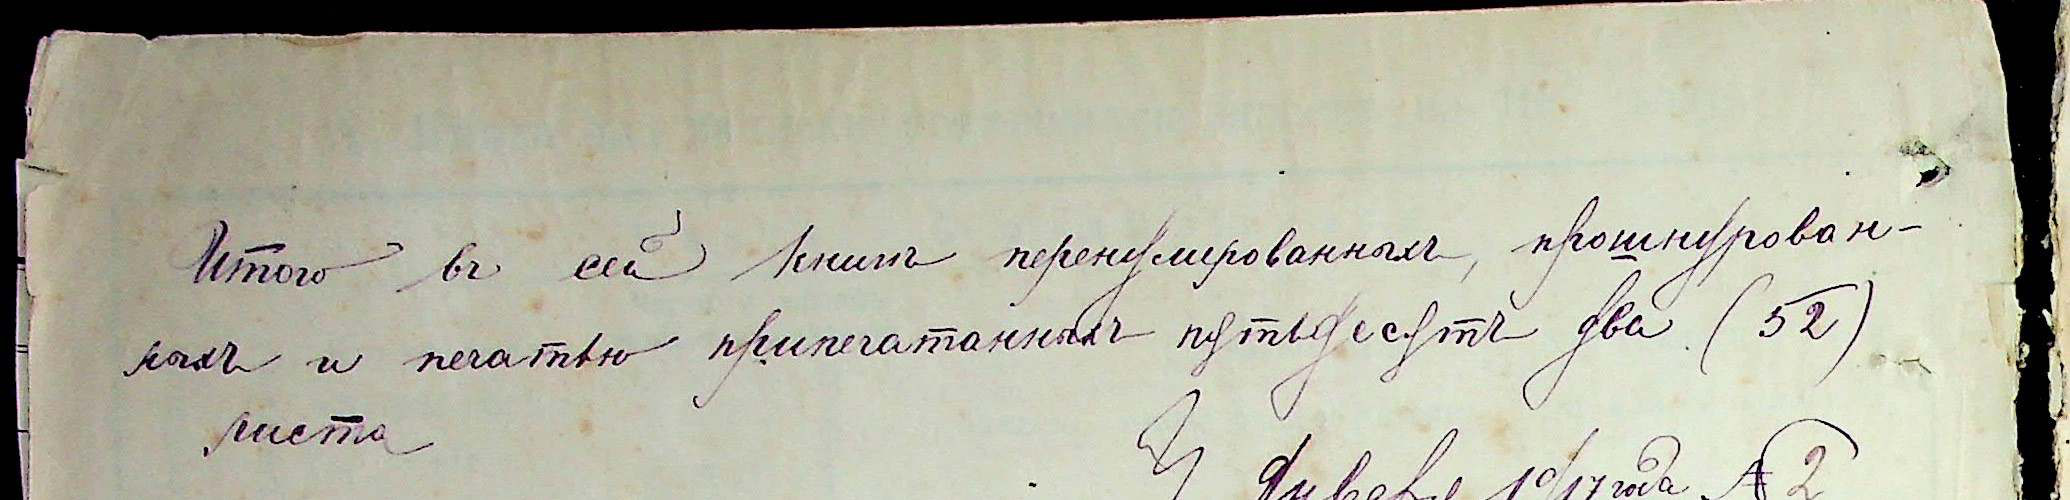 Итого въ сей книгѣ перенумерованныхъ, прошнурован-
ныхъ и печатью припечатанныхъ пятьдесятъ два (52)
листа
Января 1917 года № 2